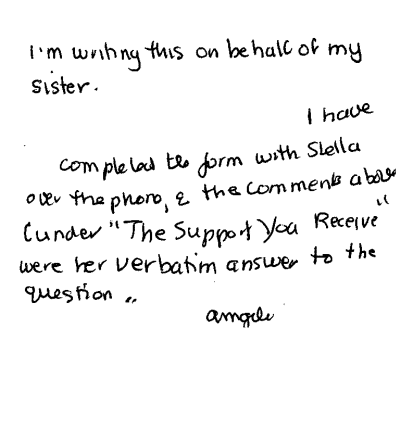 I'm writing this on behalf of my
sister.
I have
completed the form with Stella
over the phone, & the comments above
(under "The Support You Receive"
were her verbatim answer to the
question "